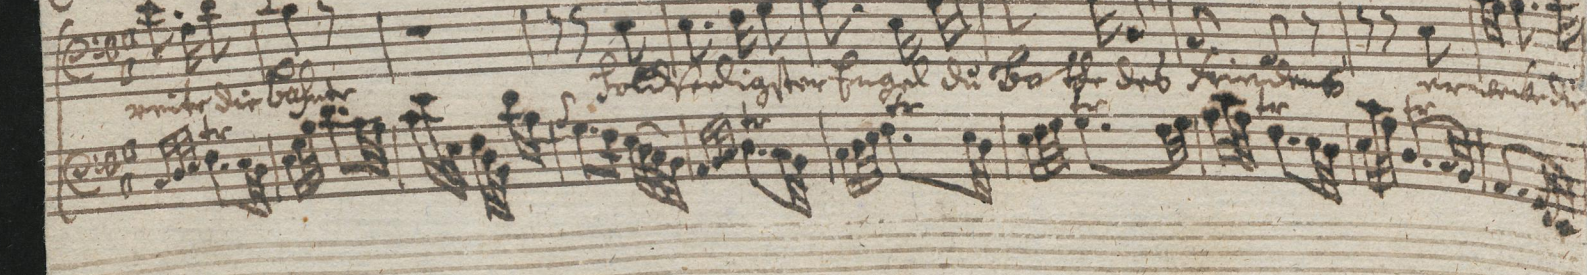 reite die bahne
Holdseeligster Engel du Bothe des Friedens
tr tr tr tr tr tr